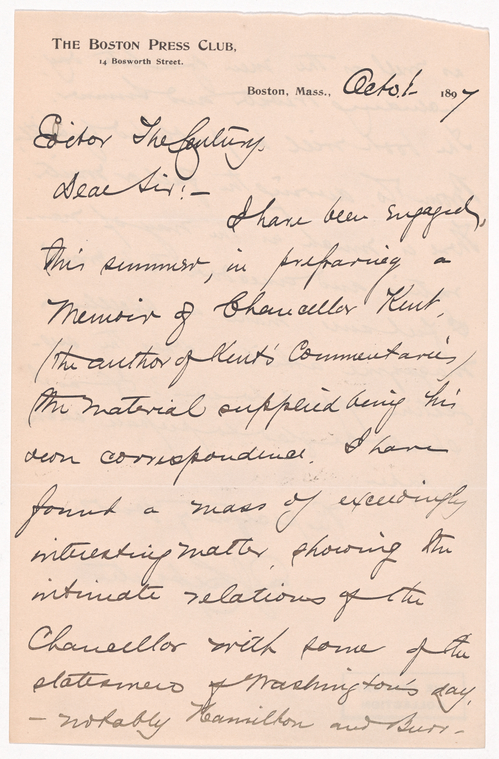 THE BOSTON PRESS CLUB,
14 Bosworth Street.
Boston, Mass., Oct 1 1897
Editor The Century.
Dear Sir:—
I have been engaged,
this summer, in preparing a
Memoir of Chancellor Kent,
(the author of Kent's Commentaries)
the material supplied being his
own correspondence. I have
found a mass of exceedingly
interesting matter, showing the
intimate relations of the
Chancellor with some of the
statesmen of Washington's day,
— notably Hamilton and Burr—